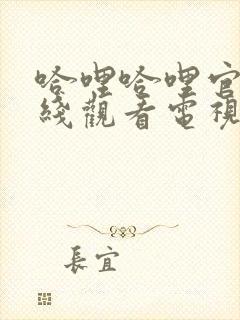 哈哩哈哩官
綫觀看電視
長宜